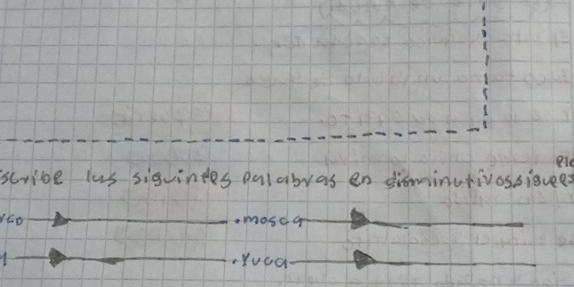 scribe las siguintes palabras en disminutivos sigue el
rco .mosca
.yuca